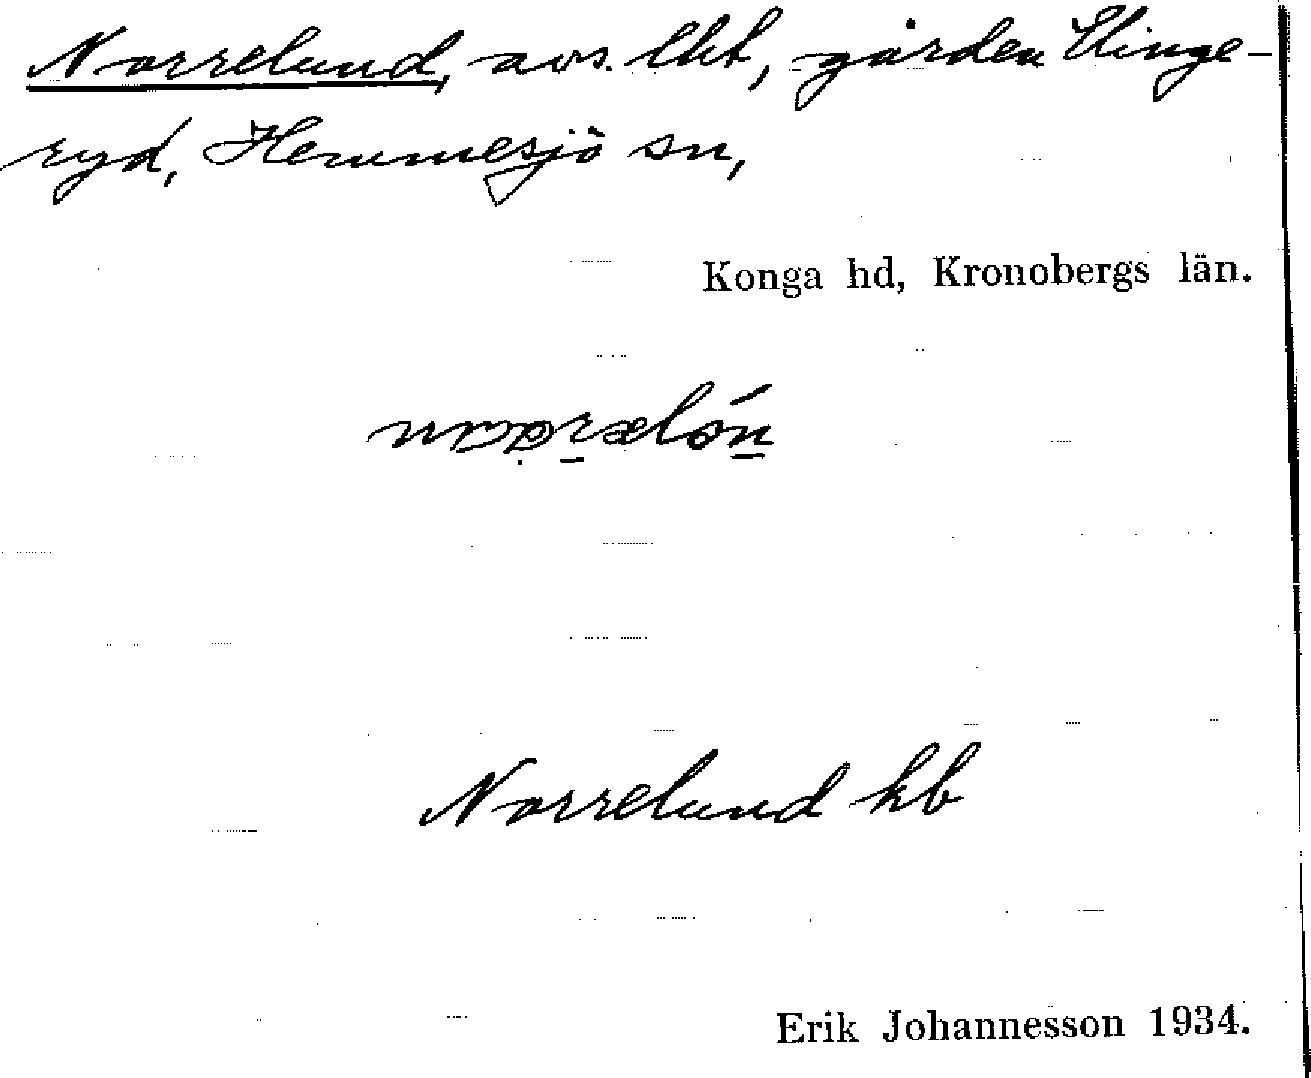 Norrelund, avs. lht, gården Slinge-
ryd, Hemmesjö sn,
Konga hd, Kronobergs län.
Norrelund kb
Erik Johannesson 1934.